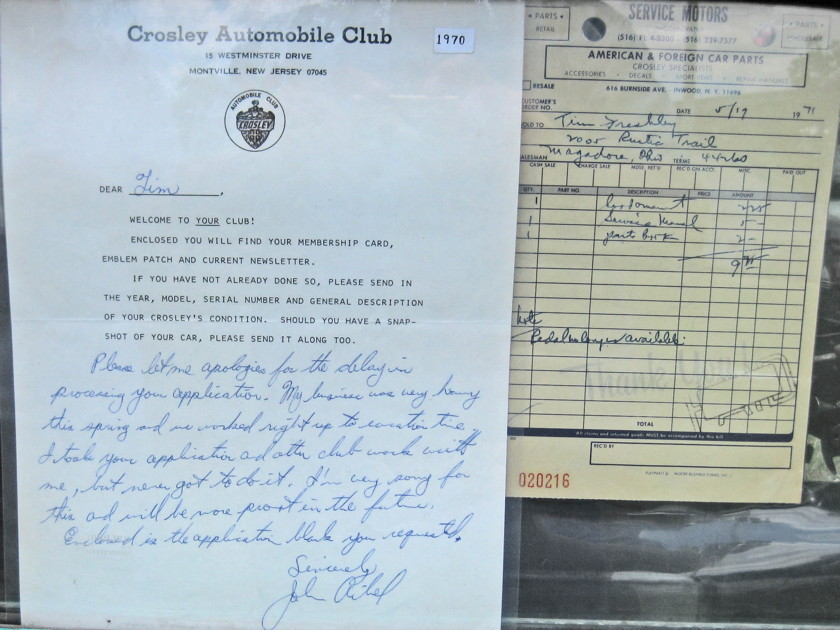 Crosley Automobile Club
15 WESTMINSTER DRIVE
MONTVILLE, NEW JERSEY 07045
1970
AUTOMOBILE CLUB
CROSLEY
DEAR Tim,
WELCOME TO YOUR CLUB!
ENCLOSED YOU WILL FIND YOUR MEMBERSHIP CARD,
EMBLEM PATCH AND CURRENT NEWSLETTER.
IF YOU HAVE NOT ALREADY DONE SO, PLEASE SEND IN
THE YEAR, MODEL, SERIAL NUMBER AND GENERAL DESCRIPTION
OF YOUR CROSLEY'S CONDITION. SHOULD YOU HAVE A SNAP-
SHOT OF YOUR CAR, PLEASE SEND IT ALONG TOO.
Please let me apologies for the delay in
processing your application. My business was very heavy
this spring and we worked right up to vacation time.
I took your application ad other club work with
me, but never got to do it. I'm very sorry for
this ad will be more prompt in the future.
Enclosed is the application blank you requested.
Sincerely
John
PARTS
RETAIL
SERVICE MOTORS
PARTS
(516) FL 4-5300 516) 239-7577
AMERICAN & FOREIGN CAR PARTS
CROSLEY SPECIALISTS
ACCESSORIES • DECALS
RESALE
616 BURNSIDE AVE. INWOOD, N.Y. 11696
CUSTOMER'S
ORDER NO.
DATE 5/19 1971
SOLD TO Tim Freshley
2005 Rustic Trail
SALESMAN Magadore, Ohio TERMS 44260
CASH SALE CHARGE SALE MDSE. RET'D REC'D ON ACC. MISC. PAID OUT
QTY. PART NO. DESCRIPTION PRICE AMOUNT
1
1 Service Manual 5 -
1 parts book 2 -
9
Note
available
Thank You!
TOTAL
All claims and returned goods MUST be accompanied by this bill
REC'D BY
020216